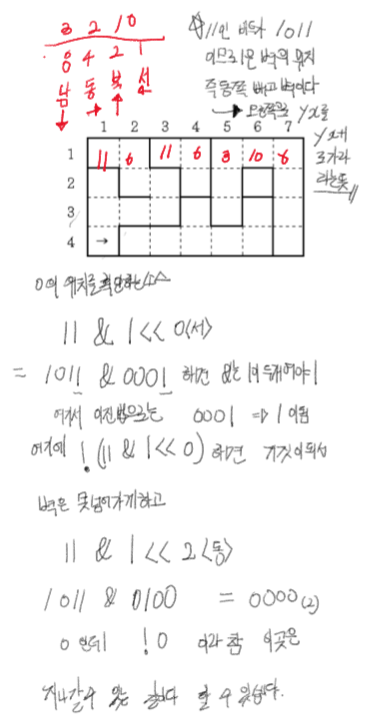 3 2 1 0
8 4 2 1
남 동 북 서
11인 비트가 1011
이므로 은 벽의 위치
즉 동쪽 빼고 벽이다
오른쪽으로 yx를
1 2 3 4 5 6 7
1 11 6 11 6 3 10 6
2
3
4 →
0의 위치를 확인하는 소스
11 & 1<<0(서)
= 1011 & 0001 하면 &는 1이 두개여야 1
여기서 이진법으로는 0001 => 1 이됨
여기에 !(11 & 1<<0) 하면 거짓이 되서
벽은 못넘어가게하고
11 & 1<<2<동>
1011 & 0100 = 0000(2)
0 인데 !0 이라 참 이곳은
지나갈수 있는 길이다 할 수 있습니다.